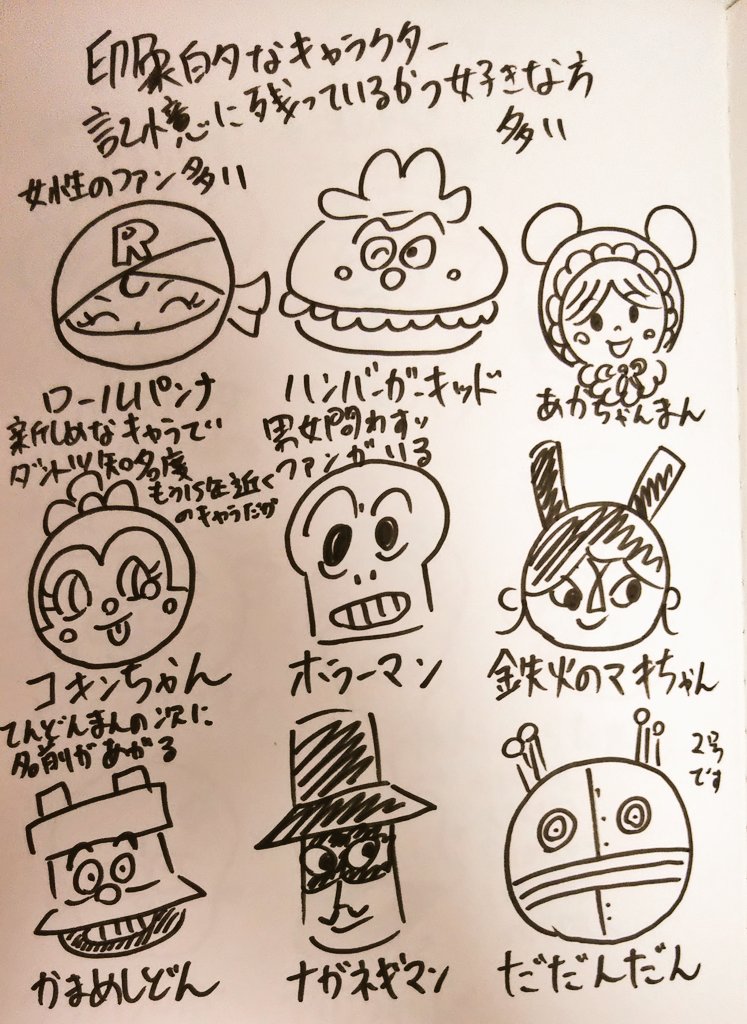 印象的なキャラクター
記憶に残っているかつ好きな方
多い
女性のファン多い
R
ロールパンナ
ハンバーガーキッド
あかちゃんまん
新しめなキャラで
ダントツ知名度
もう15年近く
のキャラだが
男女問わず
ファンがいる
コキンちゃん
ホラーマン
鉄火のマキちゃん
てんどんまんの次に
名前があがる
2号
です
かまめしどん
ナガネギマン
だだんだん